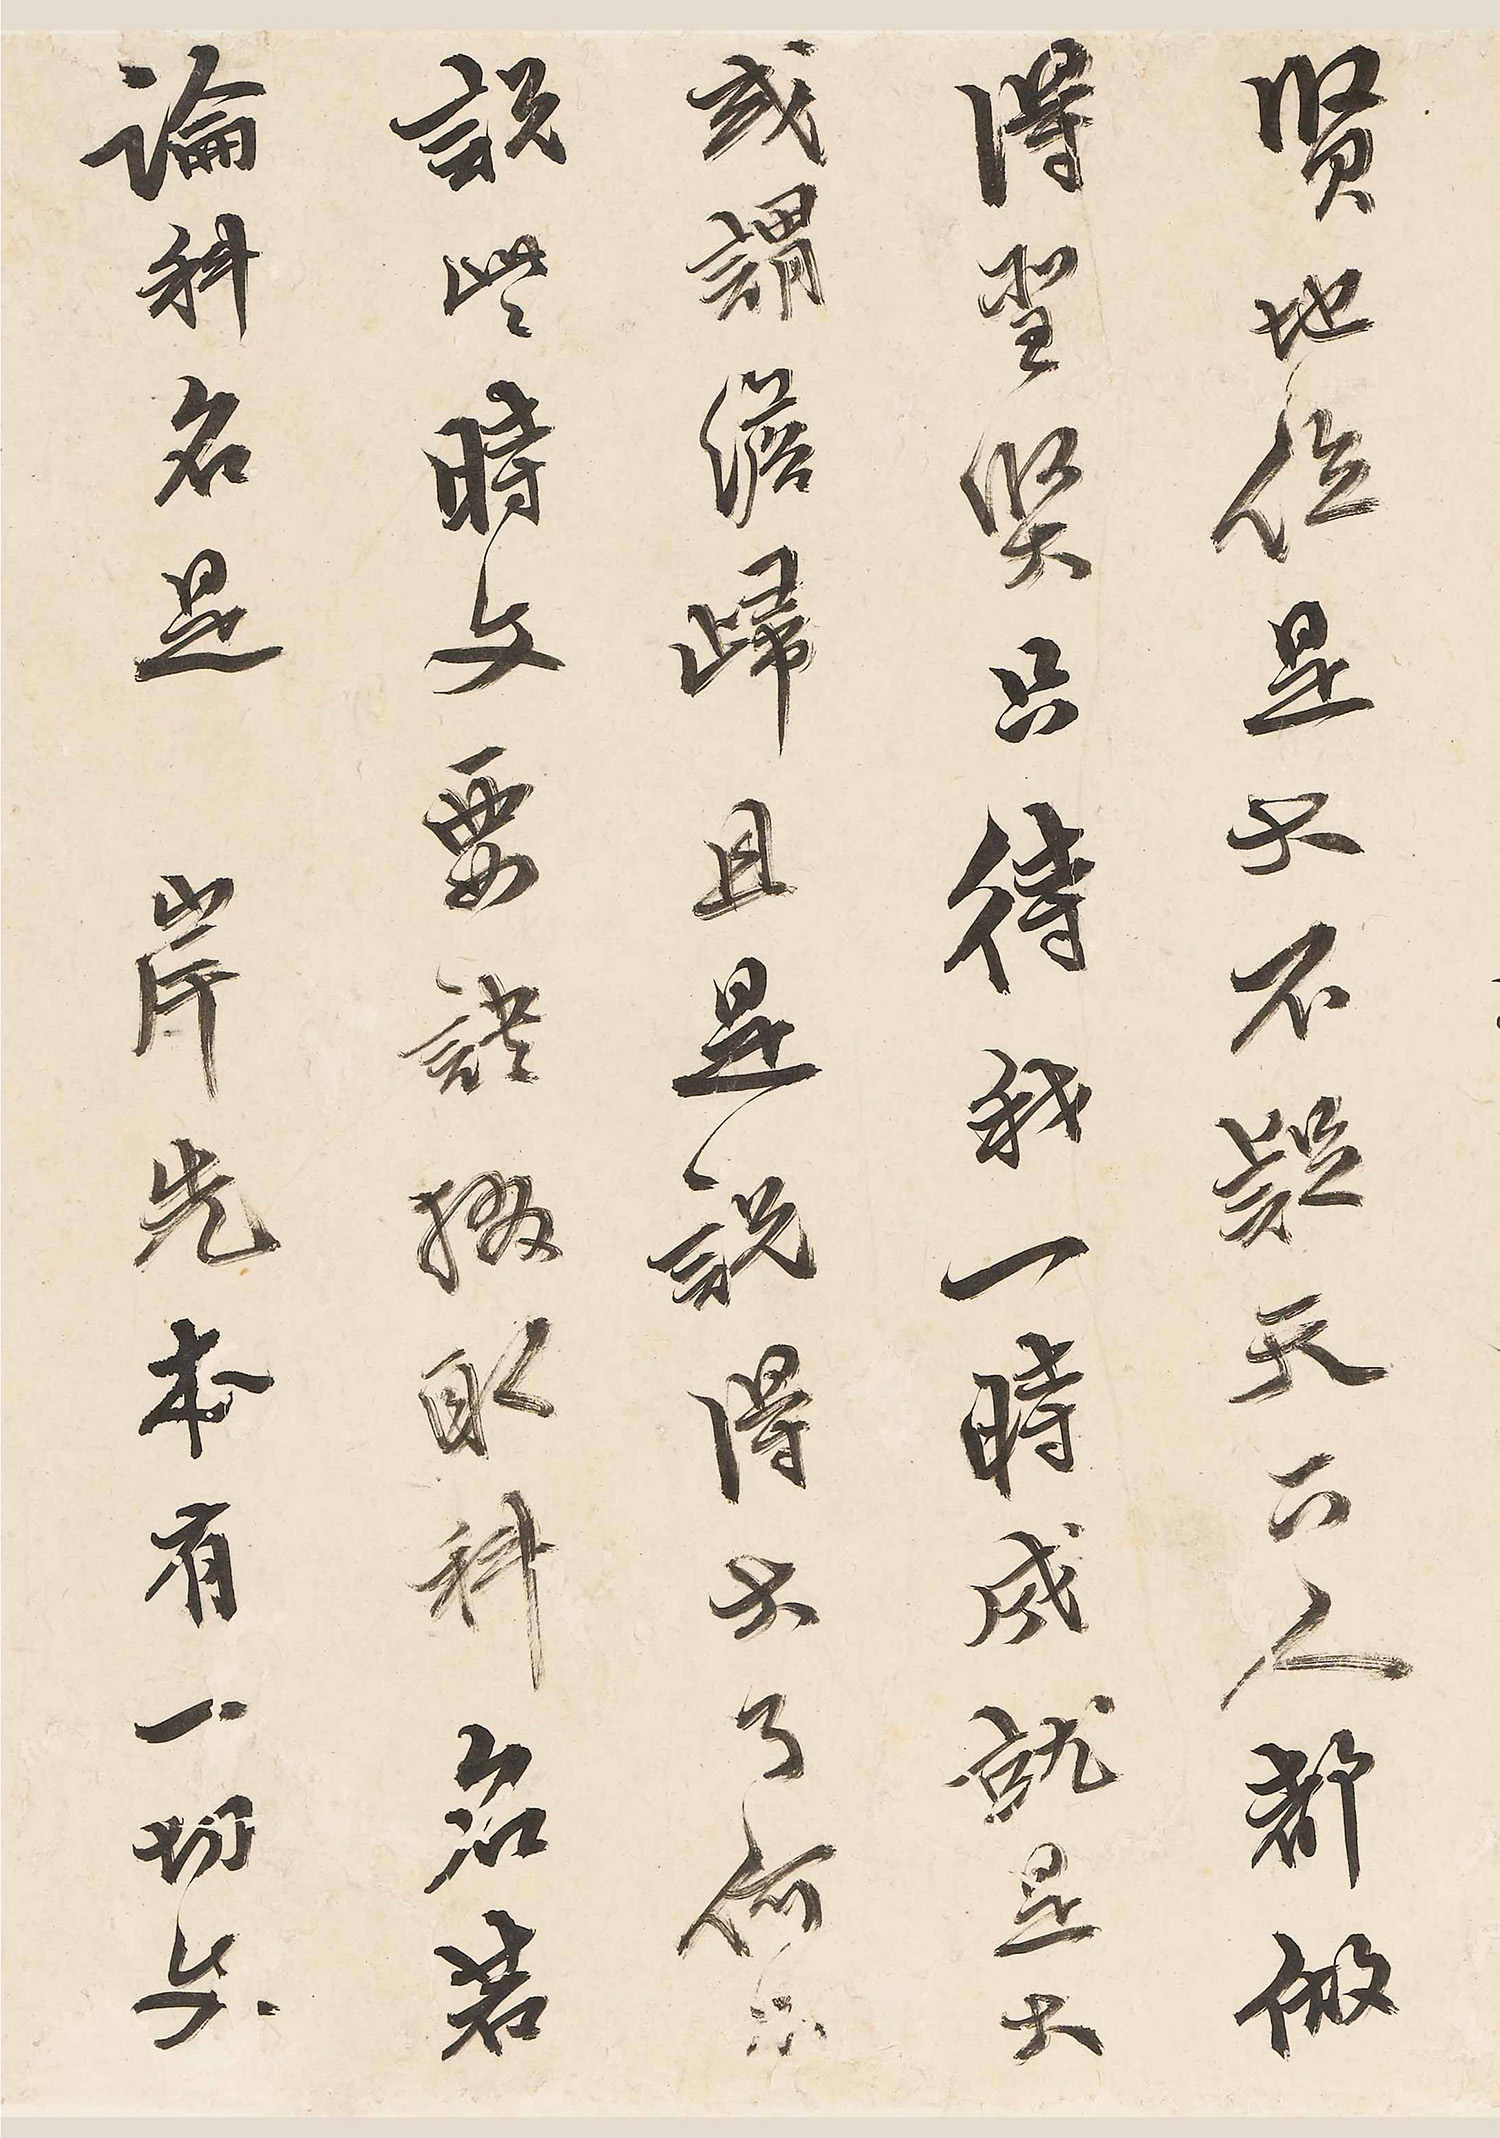 賢地位是大不疑天下人都做
得聖賢只待我一時成就是大
或謂儋歸且是說得大了何不
說些時文要誆掇取科名若
論科名是 岸先本有一切矣